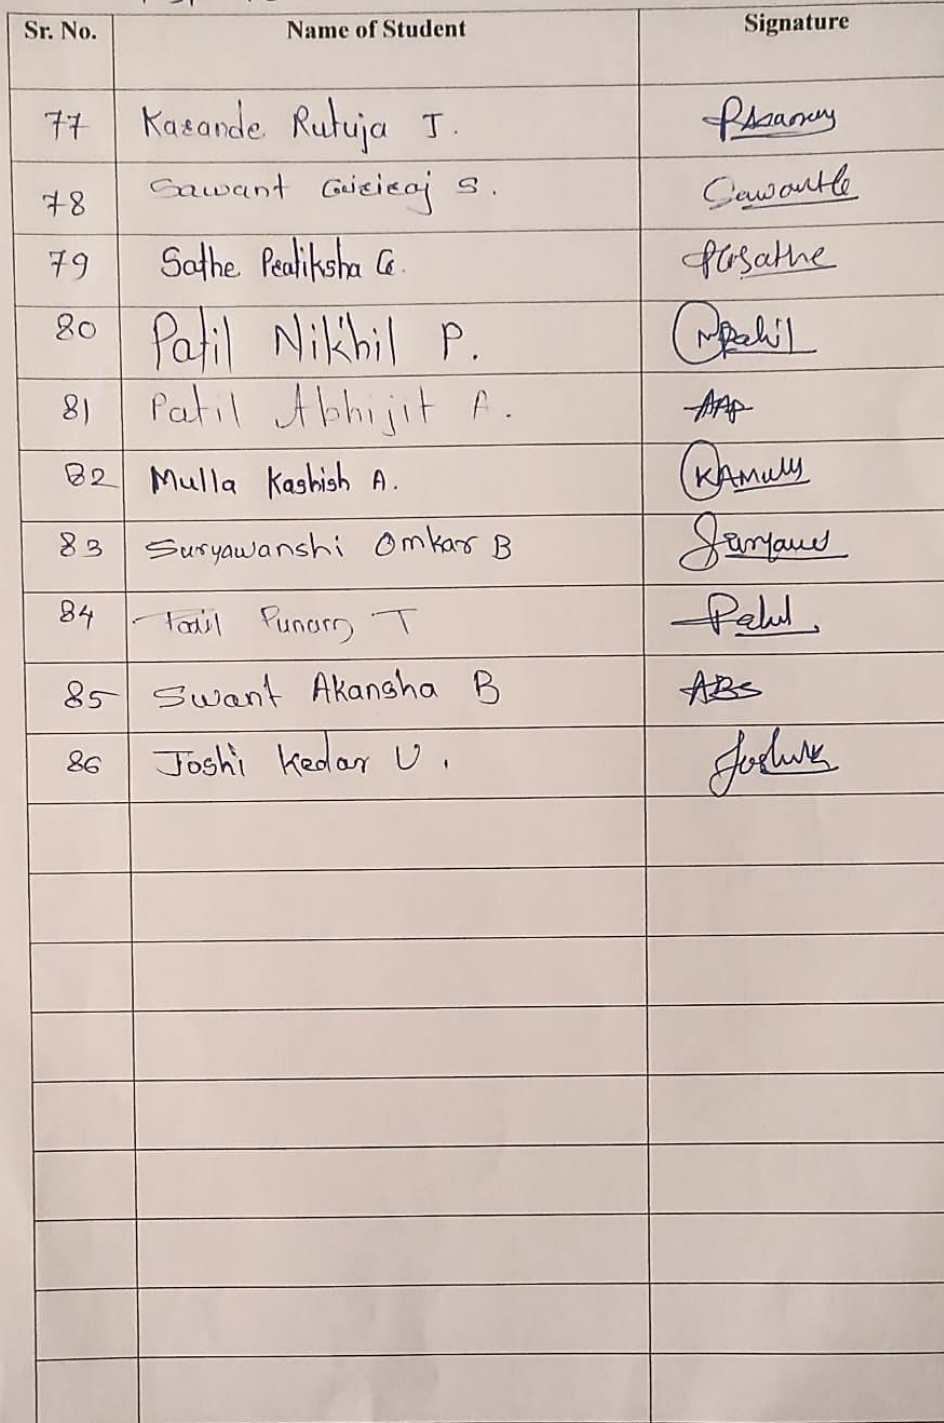 Sr. No. Name of Student Signature
77 Karande Rutuja J.
78 Sawant Giriraj S.
79 Sathe Pratiksha G. PGSathe
80 Patil Nikhil P. NPatil
81 Patil Abhijit A. AAP
82 Mulla Kashish A. KAMulla
83 Suryawanshi Omkar B
84 T
85 Swant Akansha B ABS
86 Joshi Kedar U.